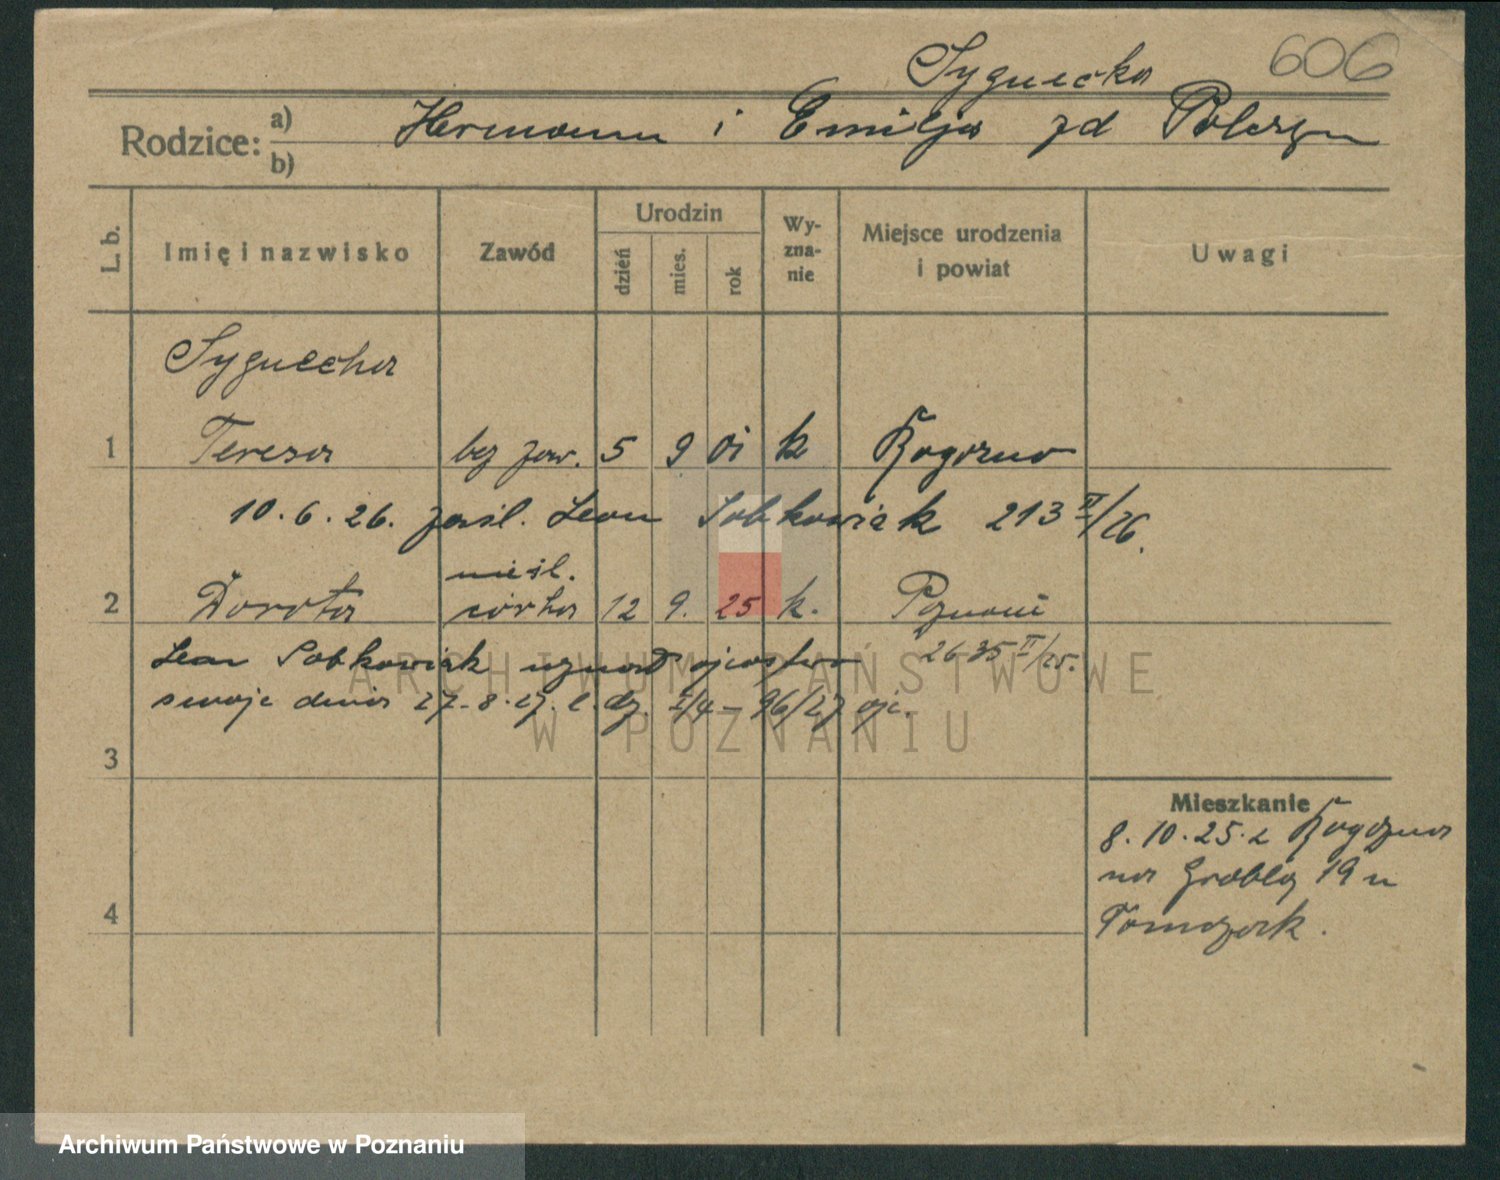 Sygnecka 606
Rodzice: a) Hermann i Emilja zd Polczyn
b)
L. b. Imię i nazwisko Zawód Urodzin dzień mies. rok Wy-zna-nie Miejsce urodzenia i powiat Uwagi
Sygnecka
1 Teresa bez zaw. 5 9 01 k Rogozno
10.6.26. zaśl. Leon Sobkowiak 213 II/26.
nieśl.
2 Dorota córka 12 9. 25 k. Poznań
Leon Sobkowiak uznał ojcostwo 2635 II/25.
swoje dnia 27.8.27. l. dz. I/4-96/27 ojc.
3
Mieszkanie
8.10.25. z Rogozna
na Groblą 19 u
4
Tomczak.
ARCHIWUM PAŃSTWOWE
W POZNANIU
Archiwum Państwowe w Poznaniu